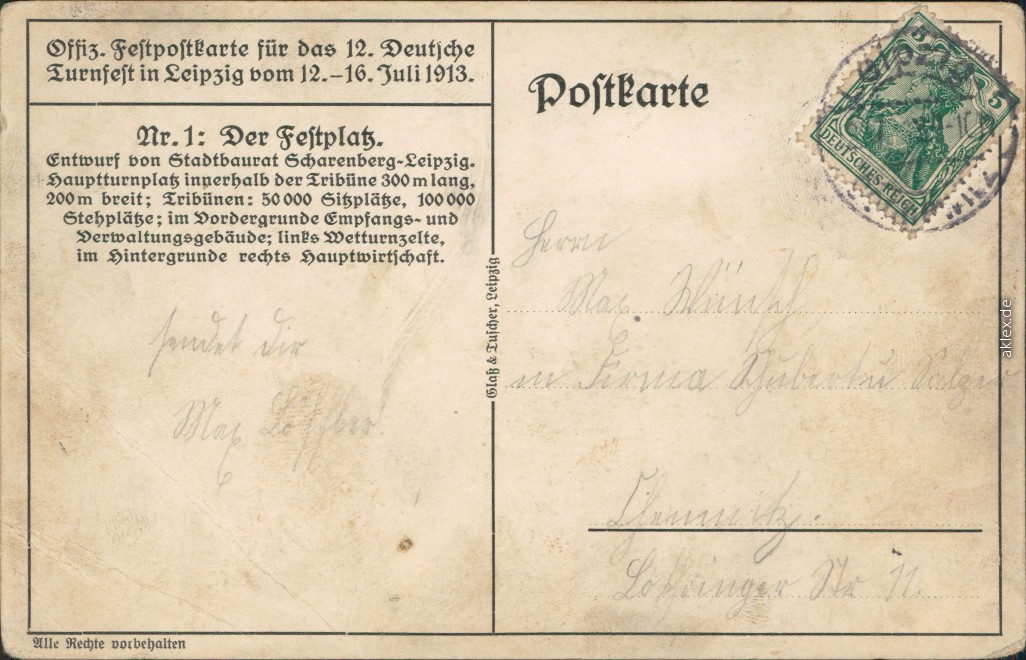 Offiz. Festpostkarte für das 12. Deutsche
Turnfest in Leipzig vom 12.–16. Juli 1913.
Nr. 1: Der Festplatz.
Entwurf von Stadtbaurat Scharenberg-Leipzig.
Hauptturnplatz innerhalb der Tribüne 300 m lang,
200 m breit; Tribünen: 50 000 Sitzplätze, 100 000
Stehplätze; im Vordergrunde Empfangs- und
Verwaltungsgebäude; links Wetturnzelte,
im Hintergrunde rechts Hauptwirtschaft.
sendet dir
Max
Alle Rechte vorbehalten
Glaß & Tuscher, Leipzig
Postkarte
5
5
DEUTSCHES REICH
Herrn
Max Wünsch
in Firma Schubert u Salzer
Chemnitz.
Str 11.
aklex.de